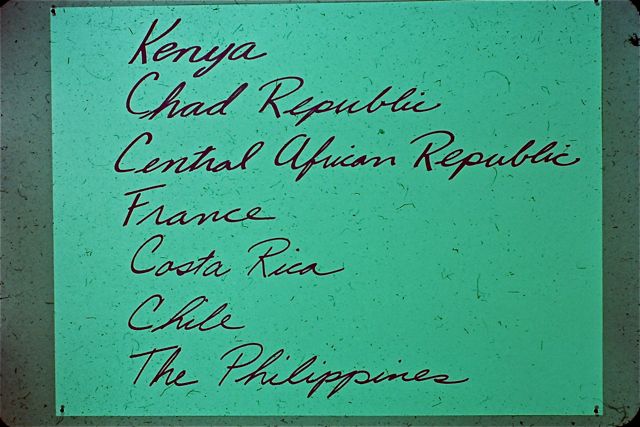 Kenya
Chad Republic
Central African Republic
France
Costa Rica
Chile
The Philippines